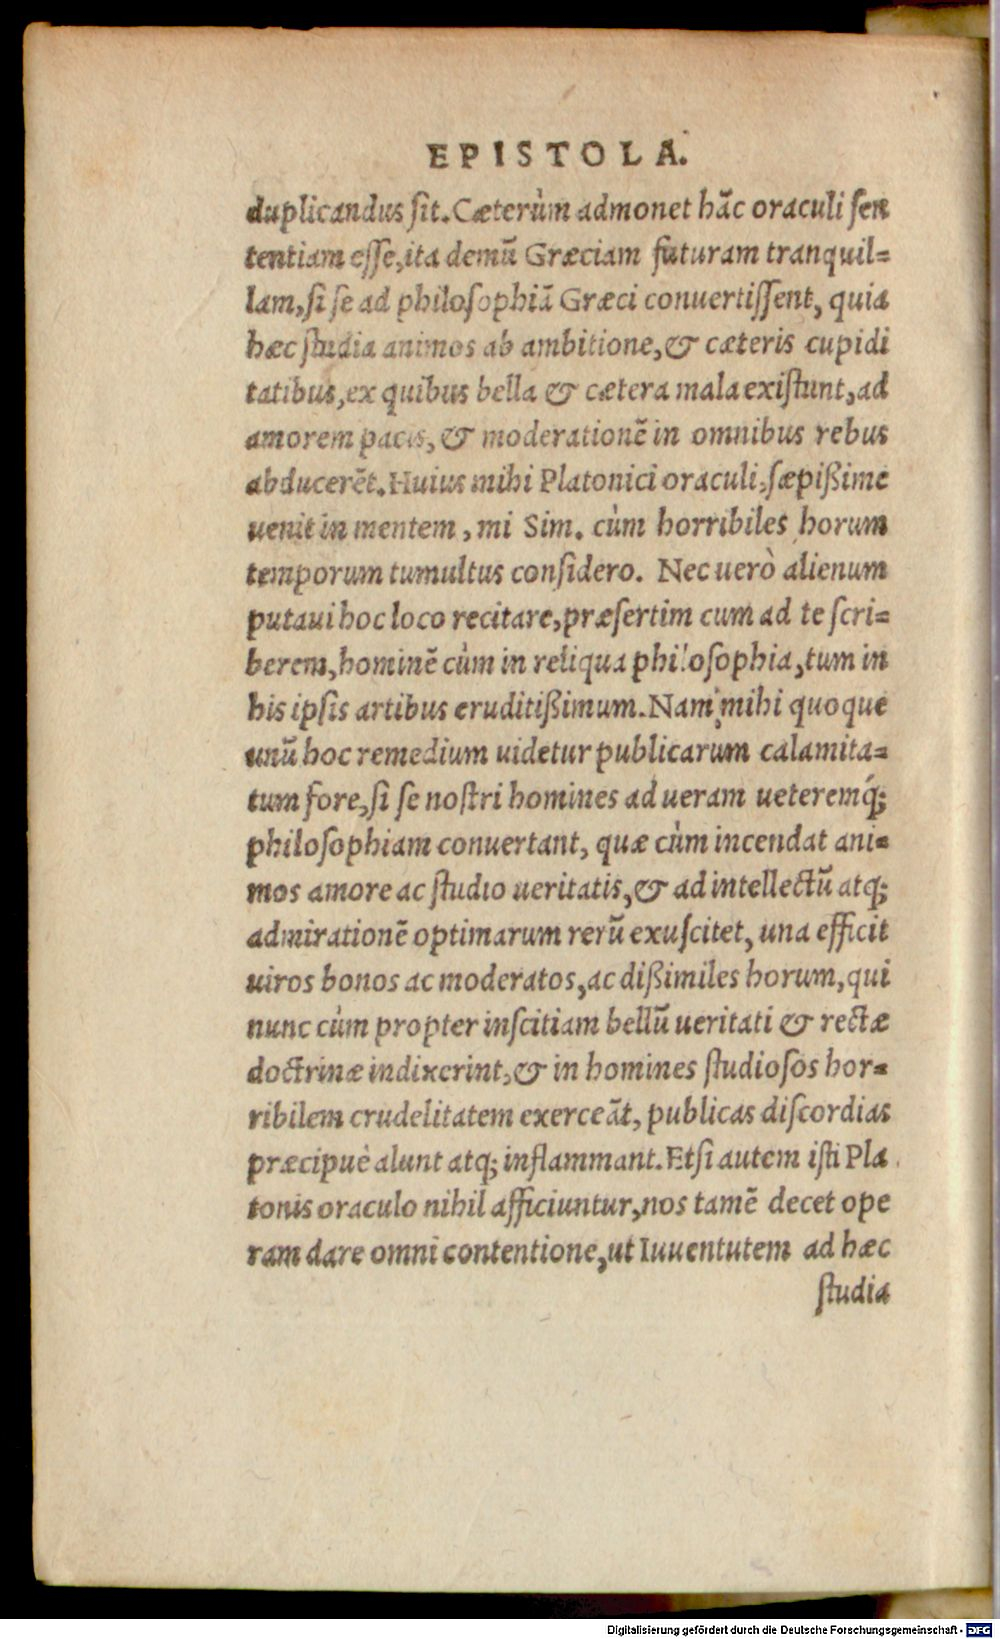 EPISTOLA.
duplicandus sit. Cæterùm admonet hãc oraculi sen
tentiam esse, ita demũ Græciam futuram tranquil=
lam, si se ad philosophiã Græci conuertissent, quia
hæc studia animos ab ambitione, & cæteris cupidi
tatibus, ex quibus bella & cætera mala existunt, ad
amorem pacis, & moderationẽ in omnibus rebus
abducerẽt. Huius mihi Platonici oraculi, sæpißime
uenit in mentem, mi Sim. cùm horribiles horum
temporum tumultus considero. Nec uerò alienum
putaui hoc loco recitare, præsertim cum ad te scri=
berem, hominẽ cùm in reliqua philosophia, tum in
his ipsis artibus eruditißimum. Nam mihi quoque
unũ hoc remedium uidetur publicarum calamita=
tum fore, si se nostri homines ad ueram ueteremq́;
philosophiam conuertant, quæ cùm incendat ani=
mos amore ac studio ueritatis, & ad intellectũ atq;
admirationẽ optimarum rerũ exuscitet, una efficit
uiros bonos ac moderatos, ac dißimiles horum, qui
nunc cùm propter inscitiam bellũ ueritati & rectæ
doctrinæ indixerint, & in homines studiosos hor=
ribilem crudelitatem exerceãt, publicas discordias
præcipuè alunt atq; inflammant. Etsi autem isti Pla
tonis oraculo nihil afficiuntur, nos tamẽ decet ope
ram dare omni contentione, ut Iuuentutem ad hæc
studia
Digitalisierung gefördert durch die Deutsche Forschungsgemeinschaft - DFG